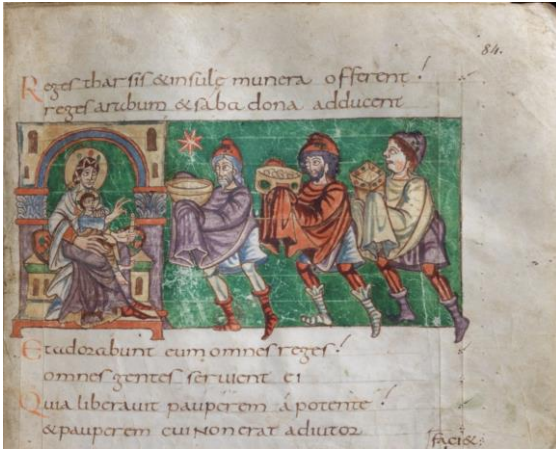 84.
Reges tharsis & insule munera offerent!
reges arabum & saba dona adducent
Et adorabunt eum omnes reges!
omnes gentes servient ei
Quia liberavit pauperem á potente!
& pauperem cui non erat adiutor
faci&: